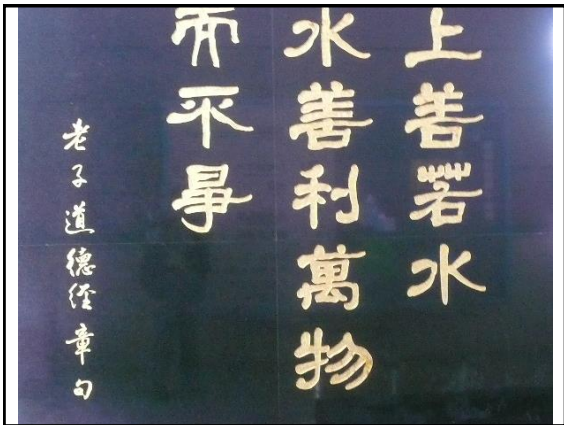 上善若水
水善利萬物
而不爭
老子道德经章句